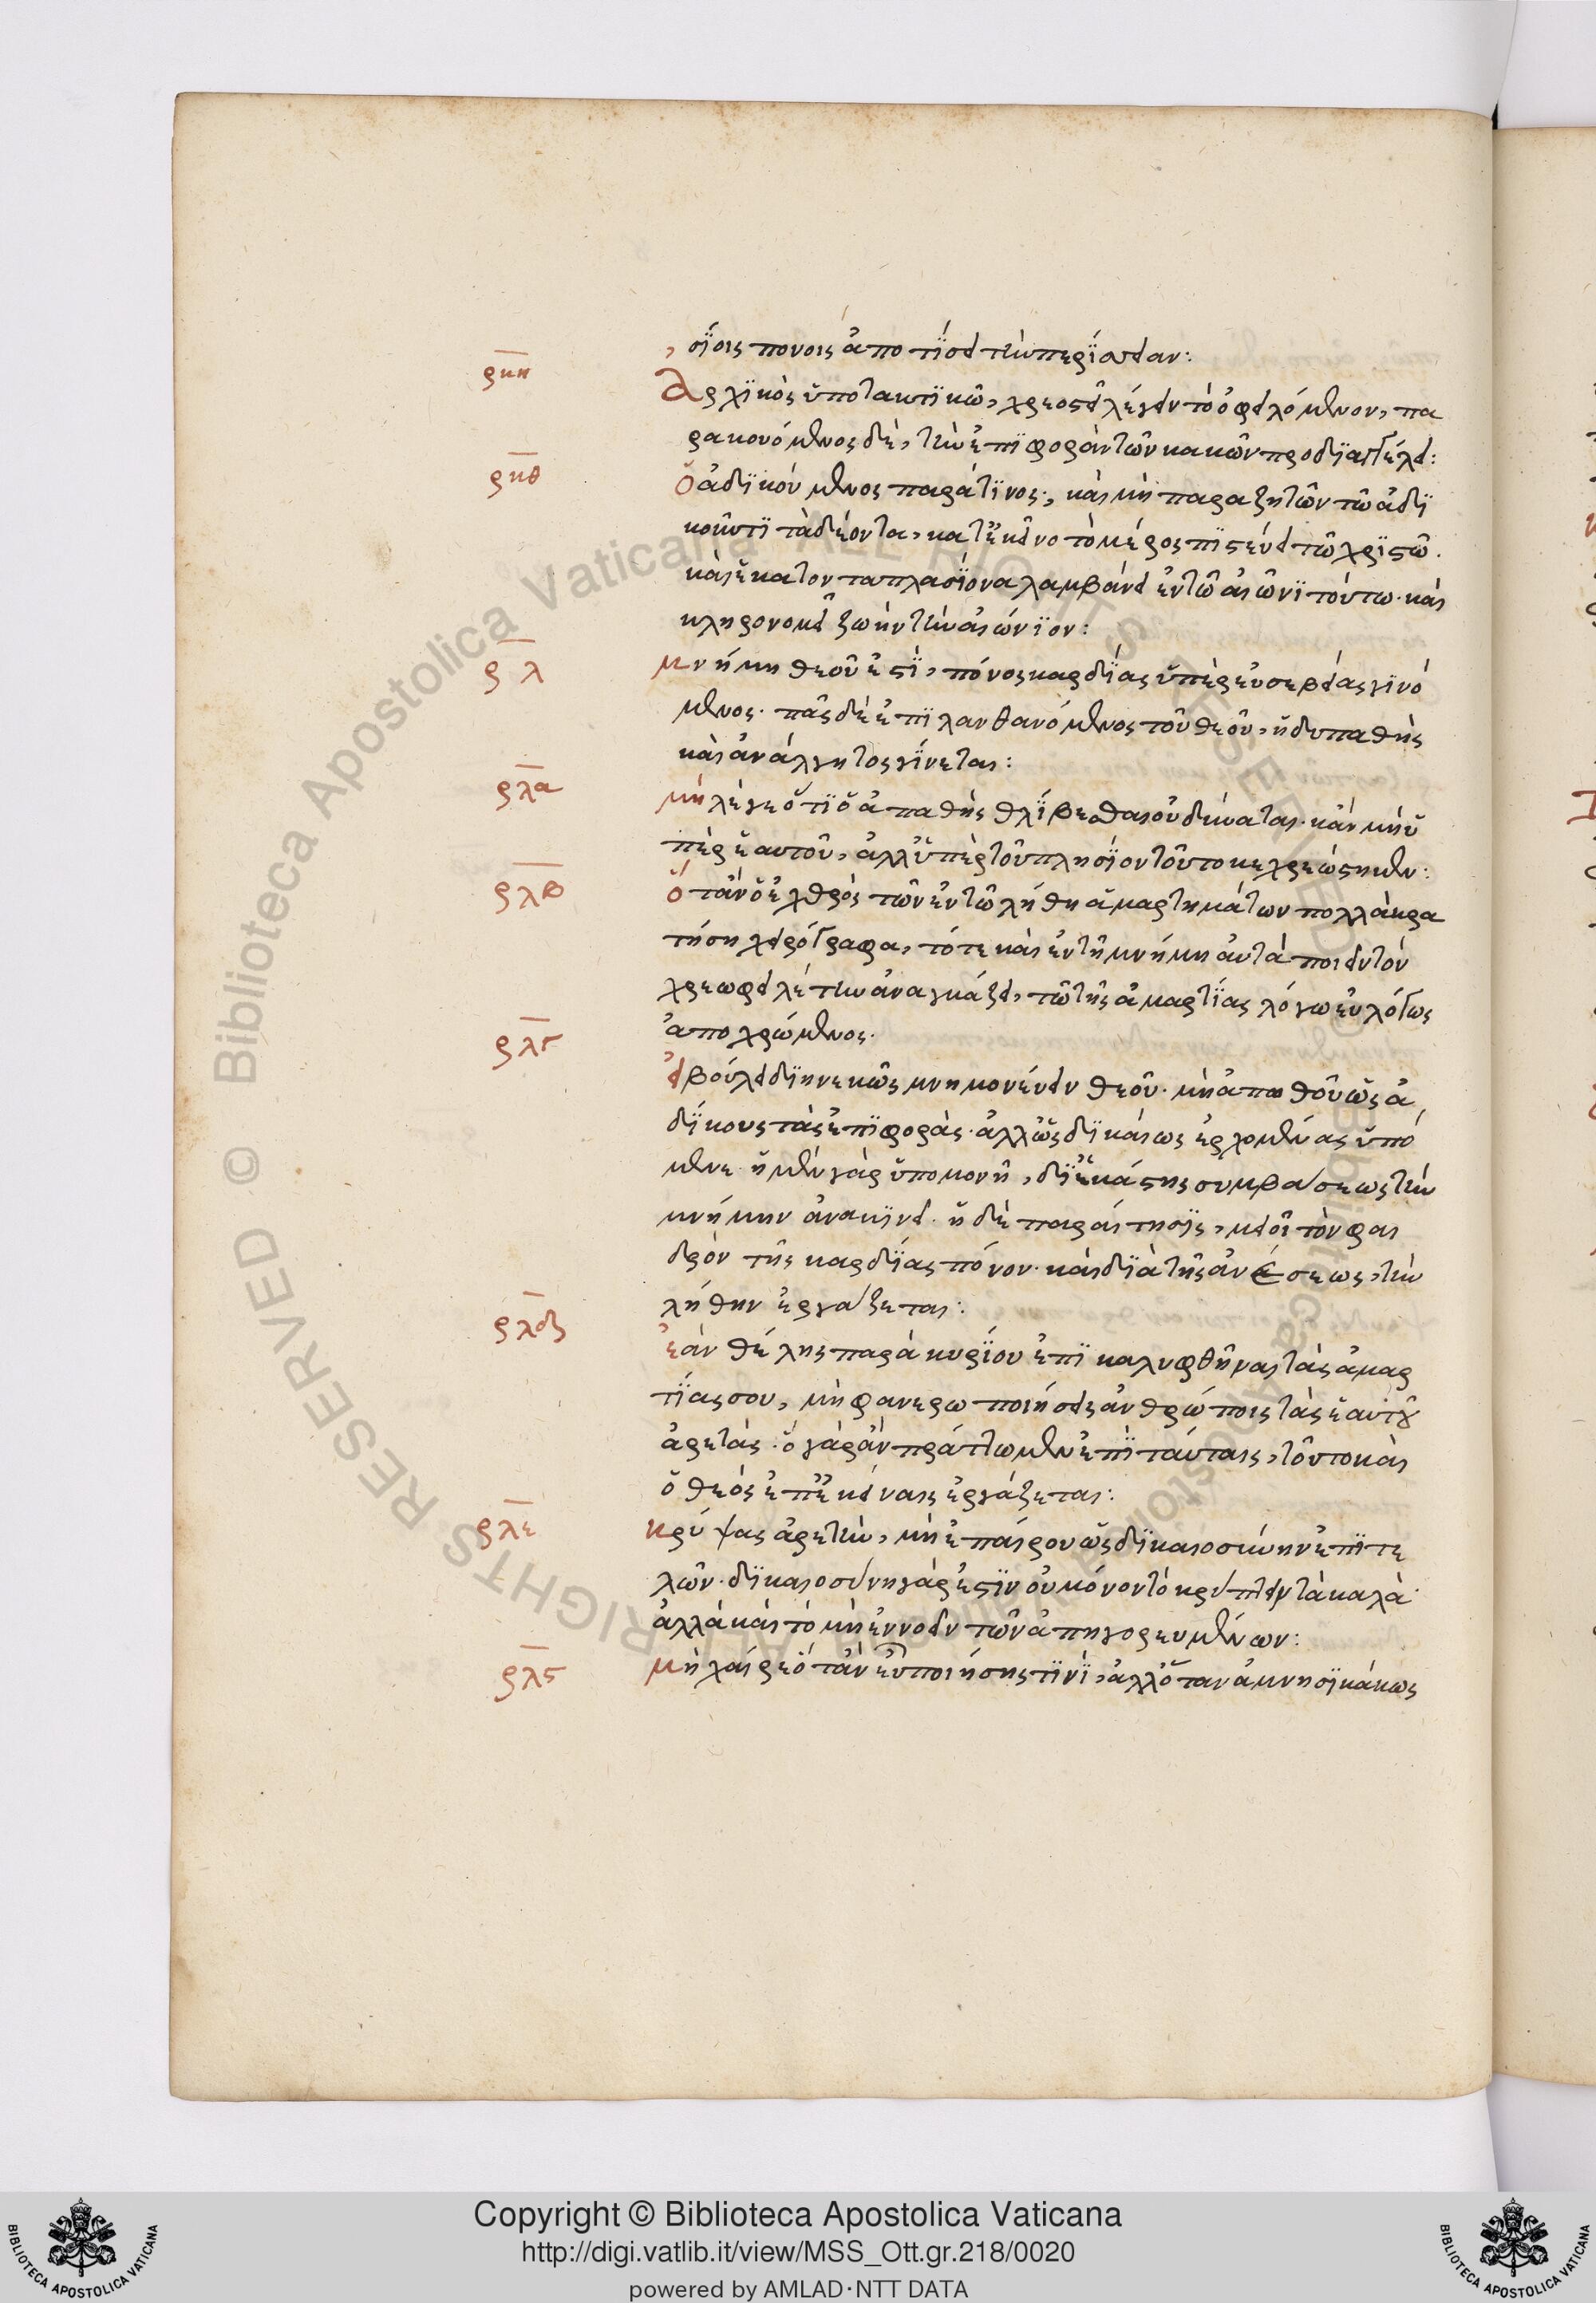 σΐοις πόνοις ἀποτίσει τὴν περίστασιν:
ρκη
Ἀρχϊκὸς ὑποτακτϊκῶ, χρεος εἰ λέγειν τὸ ὀφειλόμενον, πα
ρακουόμενος δὲ, τὴν ἐπϊφορὰν τῶν κακῶν προδϊαγγέλει:
ρκθ
ὁ ἀδϊκούμενος παρά τϊνος, καὶ μὴ παραζητῶν τῶ ἀδϊ
κοῦντϊ τὰ δέοντα, κατ' ἐκεῖνο τὸ μέρος πϊστεύει τῶ χρϊστῶ.
καὶ ἑκατονταπλασΐονα λαμβάνει ἐν τῶ αἰῶνϊ τούτω. καὶ
κληρονομεῖ ζωὴν τὴν αἰώνϊον:
ρλ
μνήμη θεοῦ ἐστΐ, πόνος καρδΐας ὑπὲρ εὐσεβείας γϊνό
μενος. πᾶς δὲ ἐπϊλανθανόμενος τοῦ θεοῦ, ἡδυπαθὴς
καὶ ἀνάλγητος γΐνεται:
ρλα
μὴ λέγε ὅτϊ ὁ ἀπαθὴς θλΐβεσθαι οὐ δύναται. κἂν μὴ ὑ
πὲρ ἑαυτοῦ, ἀλλ' ὑπὲρ τοῦ πλησΐον τοῦτο κεχρεώστηκεν:
ρλβ
ὅταν ὁ ἐχθρὸς τῶν ἐν τῶ λήθη ἁμαρτημάτων πολλὰ κρα
τήση χειρόγραφα, τότε καὶ ἐν τῆ μνήμη αὐτὰ ποιεῖν τὸν
χρεωφειλέτην ἀναγκάζει, τῶ τῆς ἁμαρτΐας λόγω εὐλόγως
ἀποχρώμενος.
ρλγ
εἰ βούλει δϊηνεκῶς μνημονεύειν θεοῦ. μὴ ἀπωθοῦ ὡς ἀ
δΐκους τὰς ἐπϊφορὰς. ἀλλ' ὡς δϊκαίως ἐρχομένας ὑπό
μενε. ἡ μὲν γὰρ ὑπομονὴ, δϊ' ἑκάστης συμβάσεως τὴν
μνήμην ἀνακϊνεῖ. ἡ δὲ παραίτησϊς, μειοῖ τὸν φαι
δρὸν τῆς καρδΐας πόνον. καὶ δϊὰ τῆς ἀνέσεως, τὴν
λήθην ἐργάζεται:
ρλδ
ἐὰν θέλης παρὰ κυρΐου ἐπϊκαλυφθῆναι τὰς ἁμαρ
τΐας σου, μὴ φανερωποιήσεις ἀνθρώποις τὰς ἑαυτοῦ
ἀρετὰς. ὃ γὰρ ἂν πράττωμεν ἐπΐ ταύταις, τοῦτο καὶ
ὁ θεὸς ἐπ' ἐκείναις ἐργάζεται:
ρλε
κρύψας ἀρετὴν, μὴ ἐπαίρου ὡς δϊκαιοσύνην ἐπϊτε
λῶν. δϊκαιοσύνη γὰρ ἐστϊν οὐ μόνον τὸ κρύπτειν τὰ καλὰ.
ἀλλὰ καὶ τὸ μὴ ἐννοεῖν τῶν ἀπηγορευμένων:
ρλϛ
μὴ χαίρε ὅταν εὐποιήσης τϊνΐ, ἀλλ' ὅταν ἀμνησϊκάκως
Copyright © Biblioteca Apostolica Vaticana
http://digi.vatlib.it/view/MSS_Ott.gr.218/0020
powered by AMLAD·NTT DATA